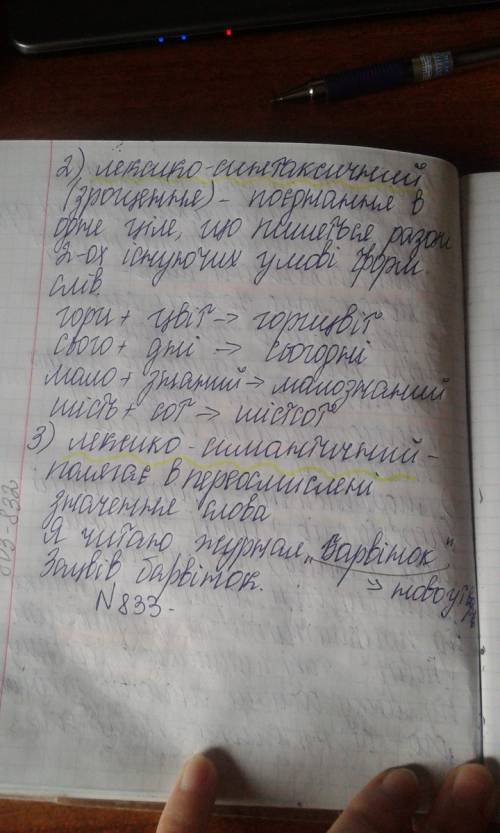 2) лексико-синтаксичний
(зрощення) - поєднання в
одне ціле, що пишеться разом
2-ох існуючих у мові форм
слів.
гори + цвіт → горицвіт
сього + дні → сьогодні
мало + знаний → малознаний
шість + сот → шістсот
3) лексико-симантичний -
полягає в переосмислені
значення слова
Я читаю журнал „Барвінок"
Зацвів барвінок. →
N 833.
803-832